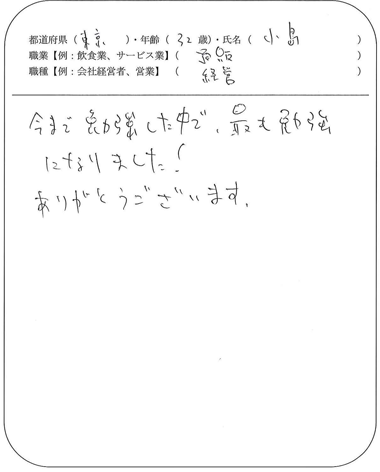 都道府県（東京）・年齢（32歳）・氏名（小島）
職業【例：飲食業、サービス業】（直販）
職種【例：会社経営者、営業】（経営）
今まで勉強した中で、最も勉強
になりました！
ありがとうございます。